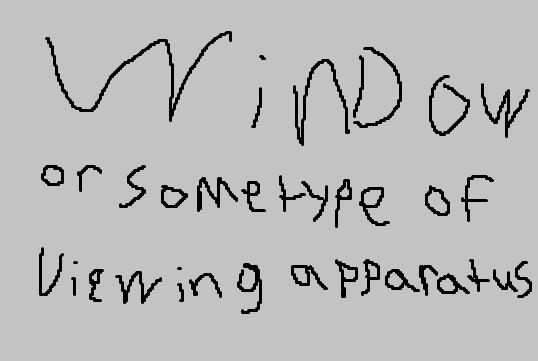 WinDow
or sometype of
Viewing apparatus